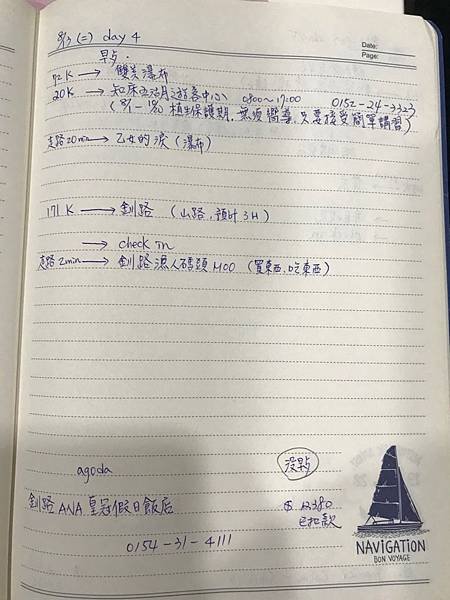 8/3 (二) day 4
Date:
Page:
早点.
72K → 雙美瀑布
20K → 知床五湖遊客中心 0800～17:00 0152-24-3323
植生保護期, 無須嚮導, 只要接受簡單講習)
走路20min → 乙女的淚 (瀑布)
171 K → 釧路 (山路, 預計3H)
→ check in
走路2min → 釧路漁人碼頭 MOO (買東西, 吃東西)
agoda
沒早
釧路 ANA 皇冠假日飯店
已扣款
0154-31-4111
NAVIGATION
BON VOYAGE